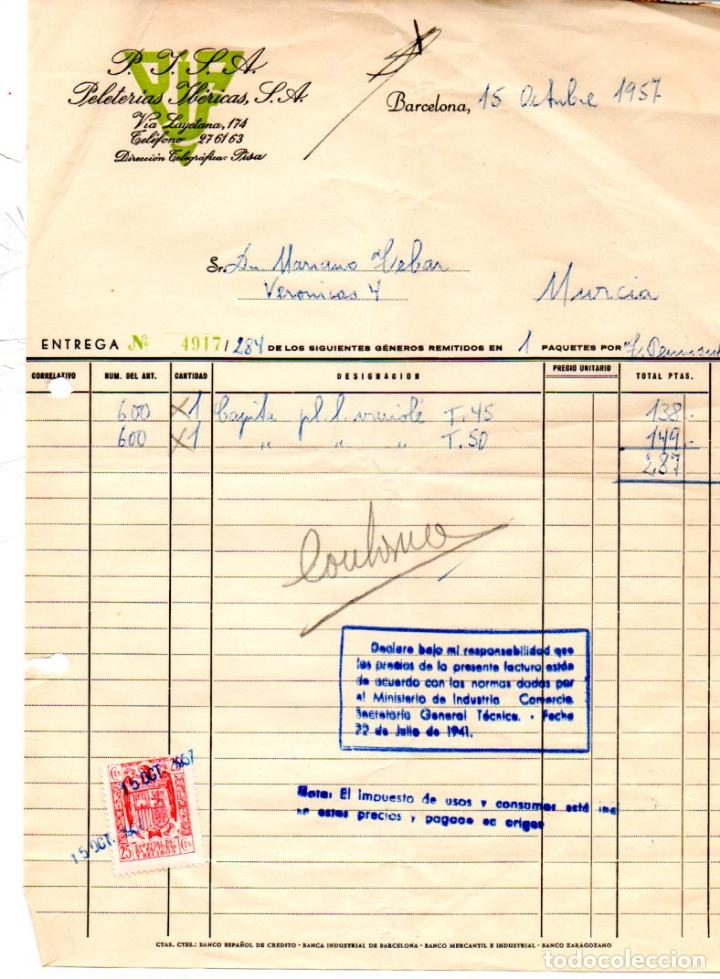 P.I.S.A.
Peleterias Ibéricas, S.A.
Vía Layetana, 174
Teléfono 276163
Dirección Telegráfica: Pisa
Barcelona, 15 Octubre 1957
Sr. Dn Mariano Tebar
Veronicas 4 Murcia
ENTREGA No 4917 / 284 DE LOS SIGUIENTES GÉNEROS REMITIDOS EN 1 PAQUETES POR
CORRELATIVO NUM. DEL ART. CANTIDAD DESIGNACION PRECIO UNITARIO TOTAL PTAS.
600 1 T. 45 138.-
600 1 " " " T. 50 149.-
287.-
Conforme
Declaro bajo mi responsabilidad que
los precios de la presente factura están
de acuerdo con las normas dadas por
el Ministerio de Industria Comercio
Secretaría General Técnica. - Fecha
22 de Julio de 1941.
Nota: El impuesto de usos y consumos está inc
en estos precios y pagado en origen
15 OCT. 1957
15 OCT.
25 Cts
ESPECIAL PARA FACTURAS Y RECIBOS
CTAS. CTES.: BANCO ESPAÑOL DE CREDITO - BANCA INDUSTRIAL DE BARCELONA - BANCO MERCANTIL E INDUSTRIAL - BANCO ZARAGOZANO
todocoleccion.net